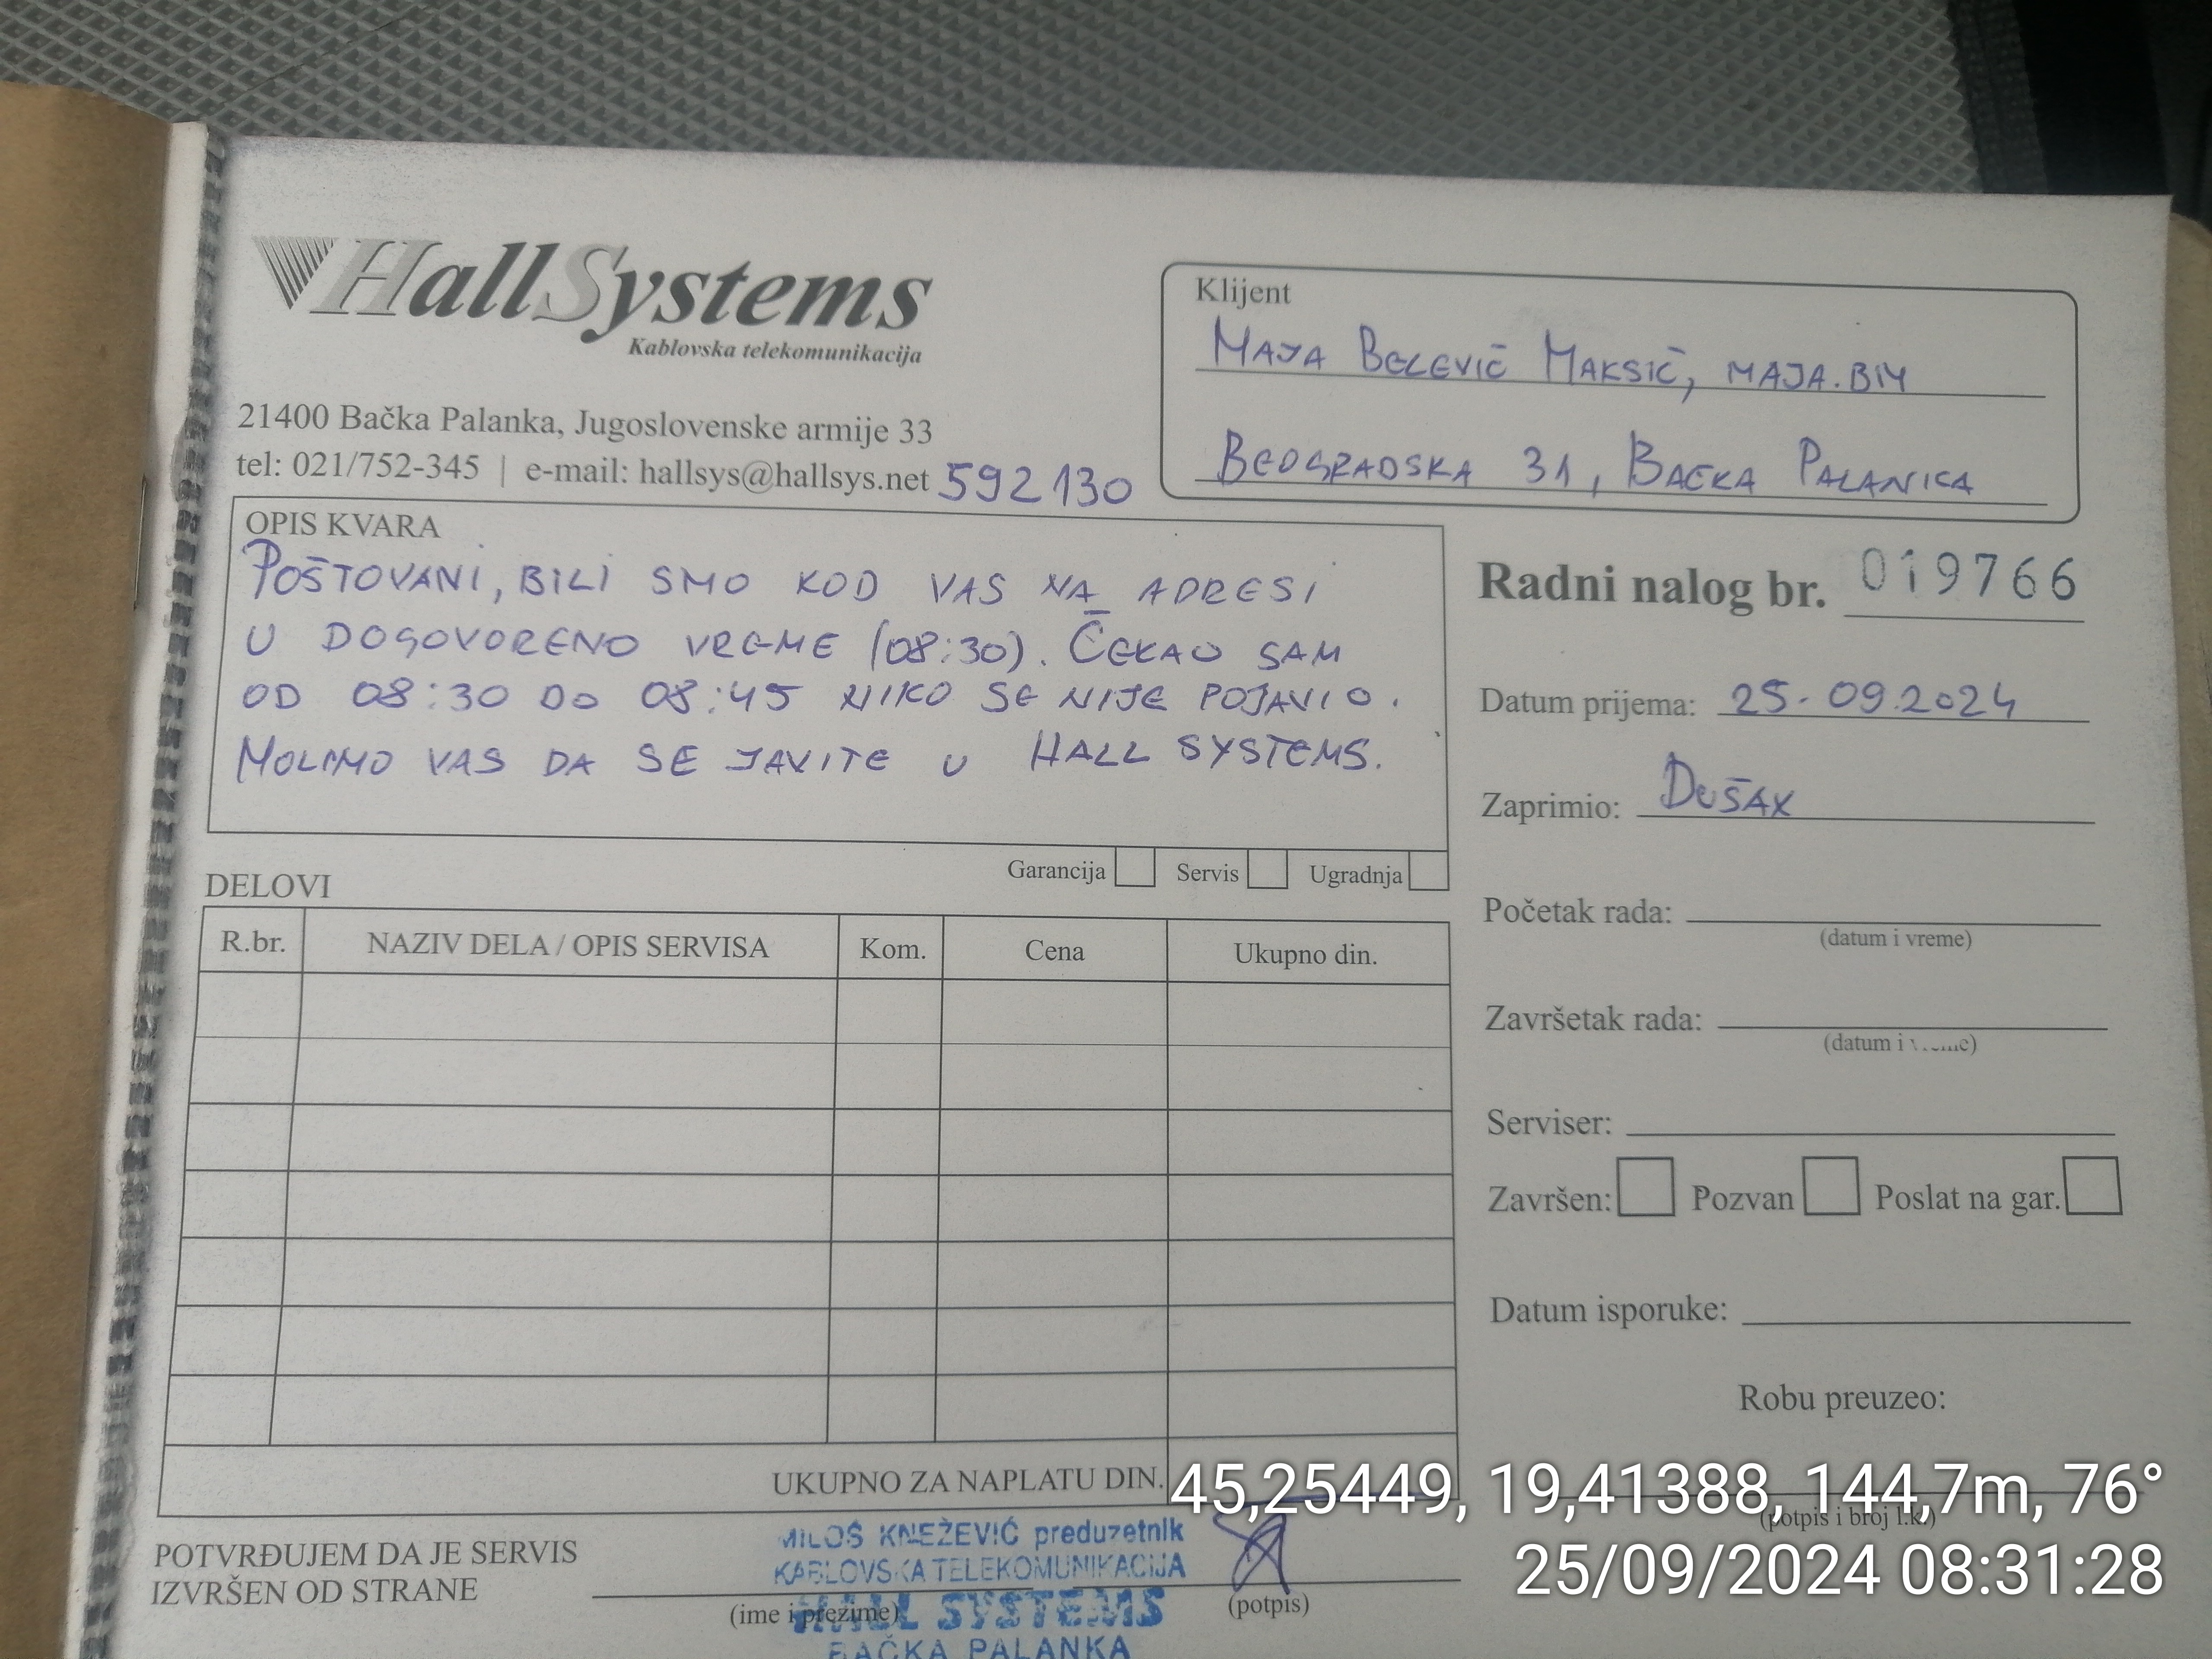 HallSystems
Kablovska telekomunikacija
21400 Bačka Palanka, Jugoslovenske armije 33
tel: 021/752-345 | e-mail: hallsys@hallsys.net 592130
Klijent
MAJA BELEVIĆ MAKSIĆ, MAJA.BM
BEOGRADSKA 31, BAČKA PALANKA
OPIS KVARA
POŠTOVANI, BILI SMO KOD VAS NA ADRESI
U DOGOVORENO VREME (08:30). ČEKAO SAM
OD 08:30 DO 08:45 NIKO SE NIJE POJAVIO.
MOLIMO VAS DA SE JAVITE U HALL SYSTEMS.
Garancija Servis Ugradnja
Radni nalog br. 019766
Datum prijema: 25.09.2024
Zaprimio: DUŠAN
Početak rada:
(datum i vreme)
Završetak rada:
(datum i vreme)
Serviser:
Završen: Pozvan Poslat na gar.
Datum isporuke:
Robu preuzeo:
(potpis i broj l.k.)
DELOVI
R.br. NAZIV DELA / OPIS SERVISA Kom. Cena Ukupno din.
UKUPNO ZA NAPLATU DIN.
POTVRĐUJEM DA JE SERVIS
IZVRŠEN OD STRANE
(ime i prezime)
(potpis)
MILOŠ KNEŽEVIĆ preduzetnik
KABLOVSKA TELEKOMUNIKACIJA
HALL SYSTEMS
BAČKA PALANKA
45,25449, 19,41388, 144,7m, 76°
25/09/2024 08:31:28